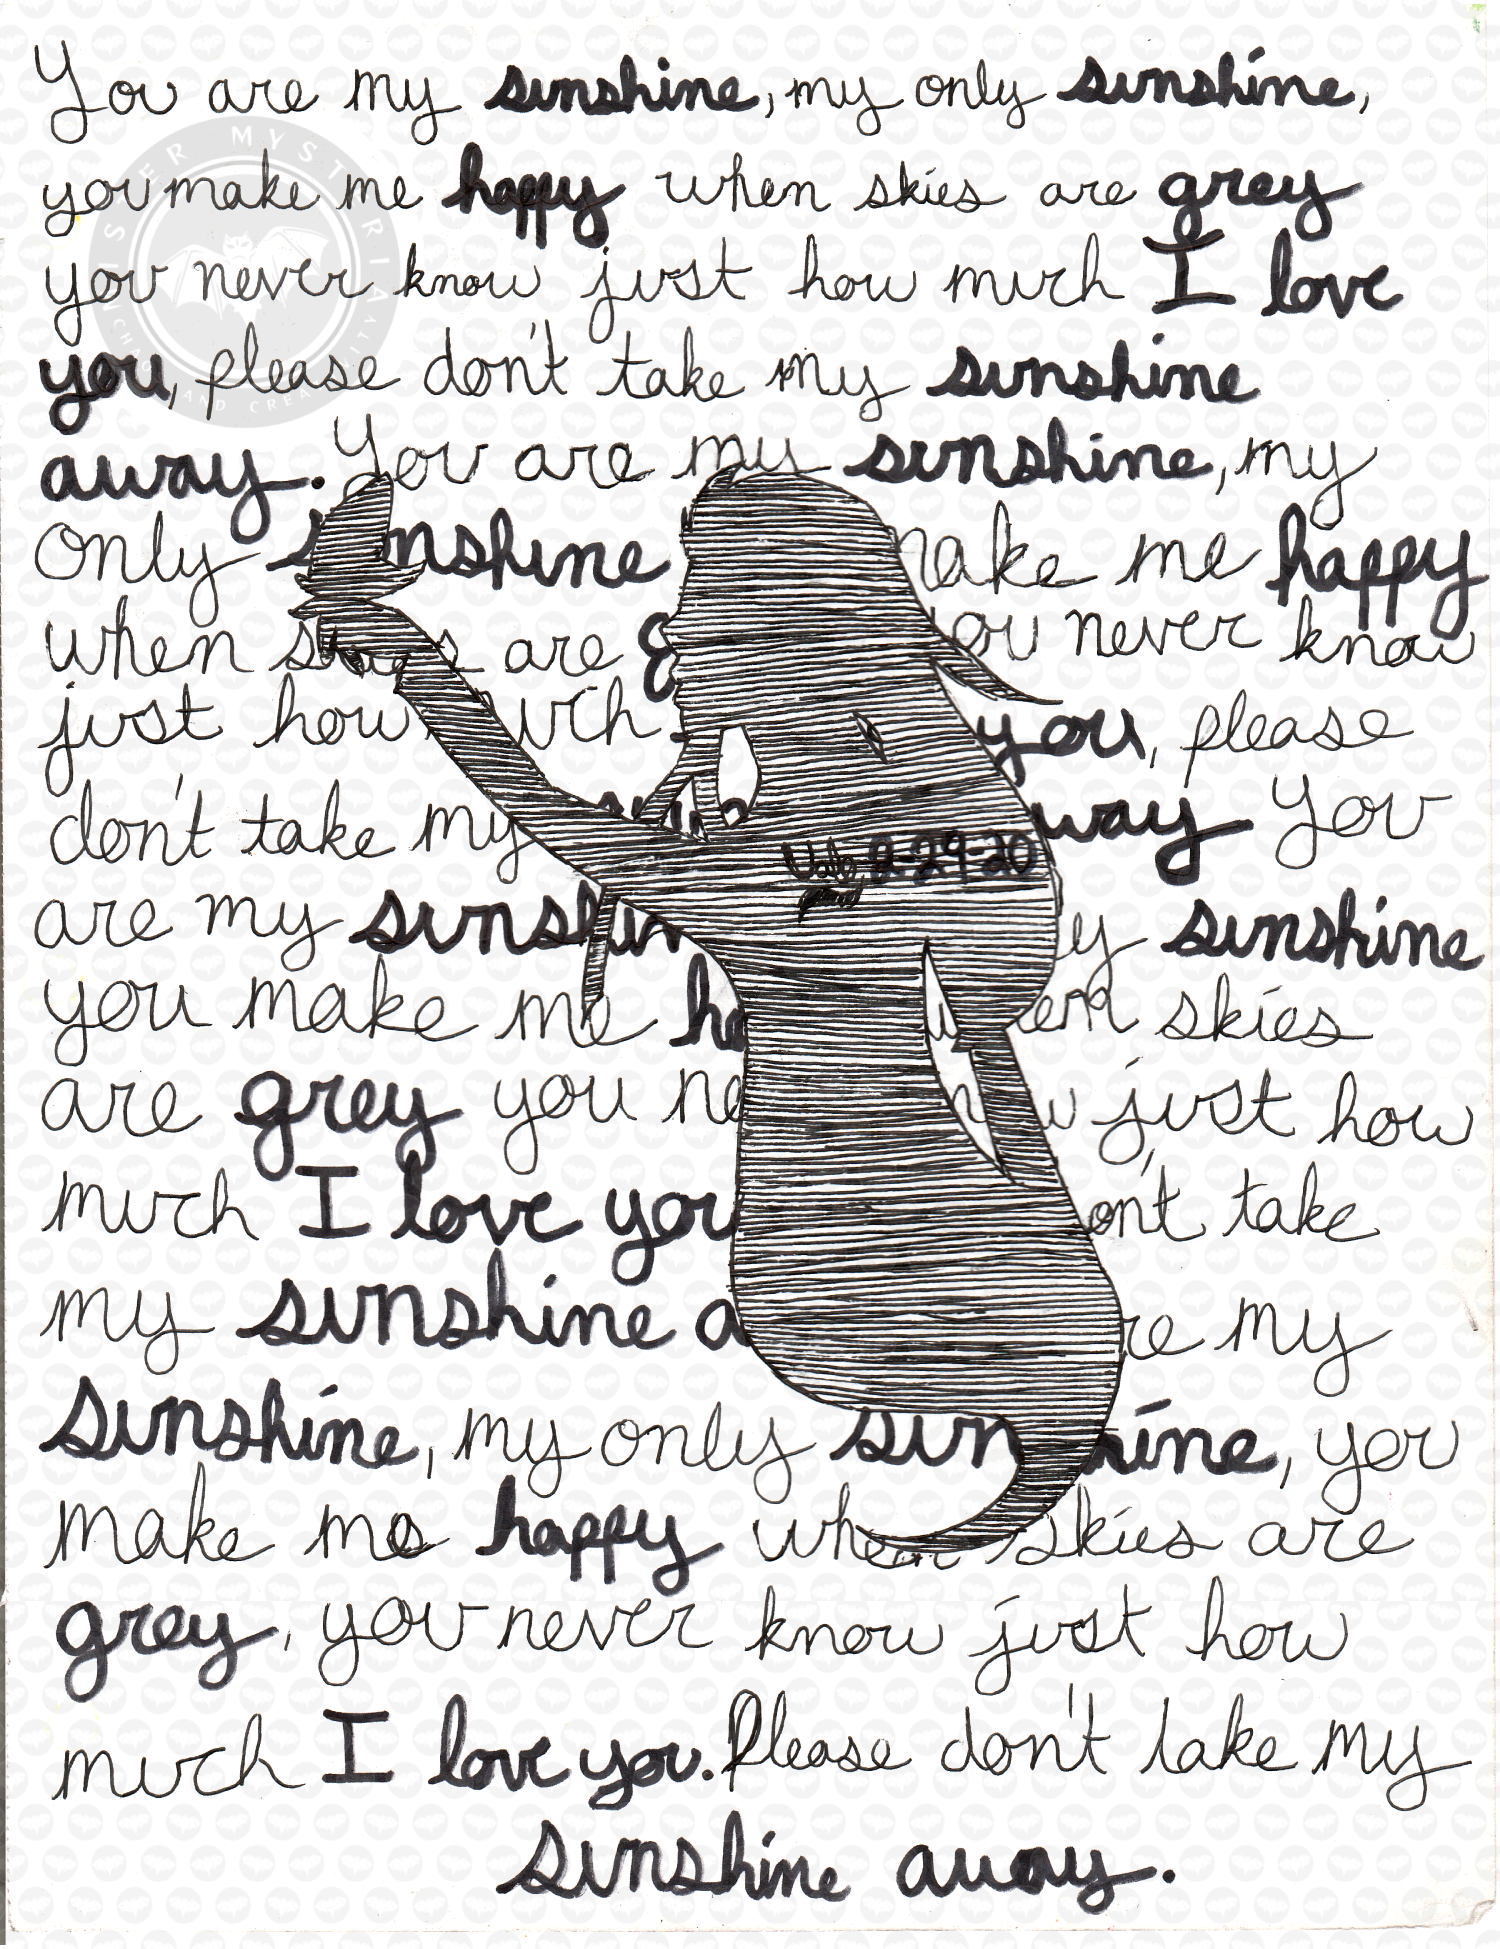 You are my sunshine, my only sunshine,
you make me happy when skies are grey
you never know just how much I love
you, please don't take my sunshine
away. You are my sunshine, my
only sunshine make me happy
when skies are you never know
just how much you, please
don't take my away You
are my sunshine my sunshine
you make me when skies
are grey you know just how
much I love you don't take
my sunshine are my
sunshine, my only sunshine, you
make me happy when skies are
grey, you never know just how
much I love you. Please don't take my
sunshine away.
2-29-20
MISTER MYSTERIA
AND CREA